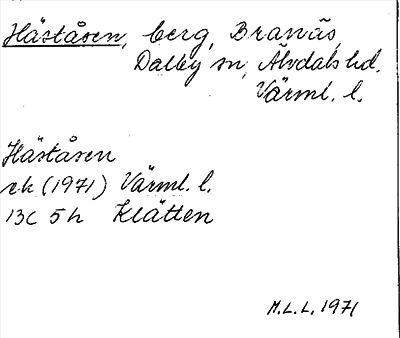 Häståsen, berg, Branäs,
Dalby sn, Älvdals hd.
Värml. l.
Häståsen
ek (1971) Värml. l.
13C 5h Klätten
M.L.L. 1971